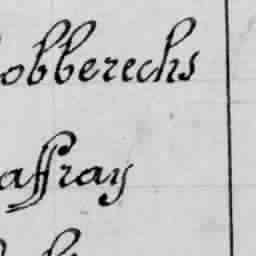 obberechs
affray